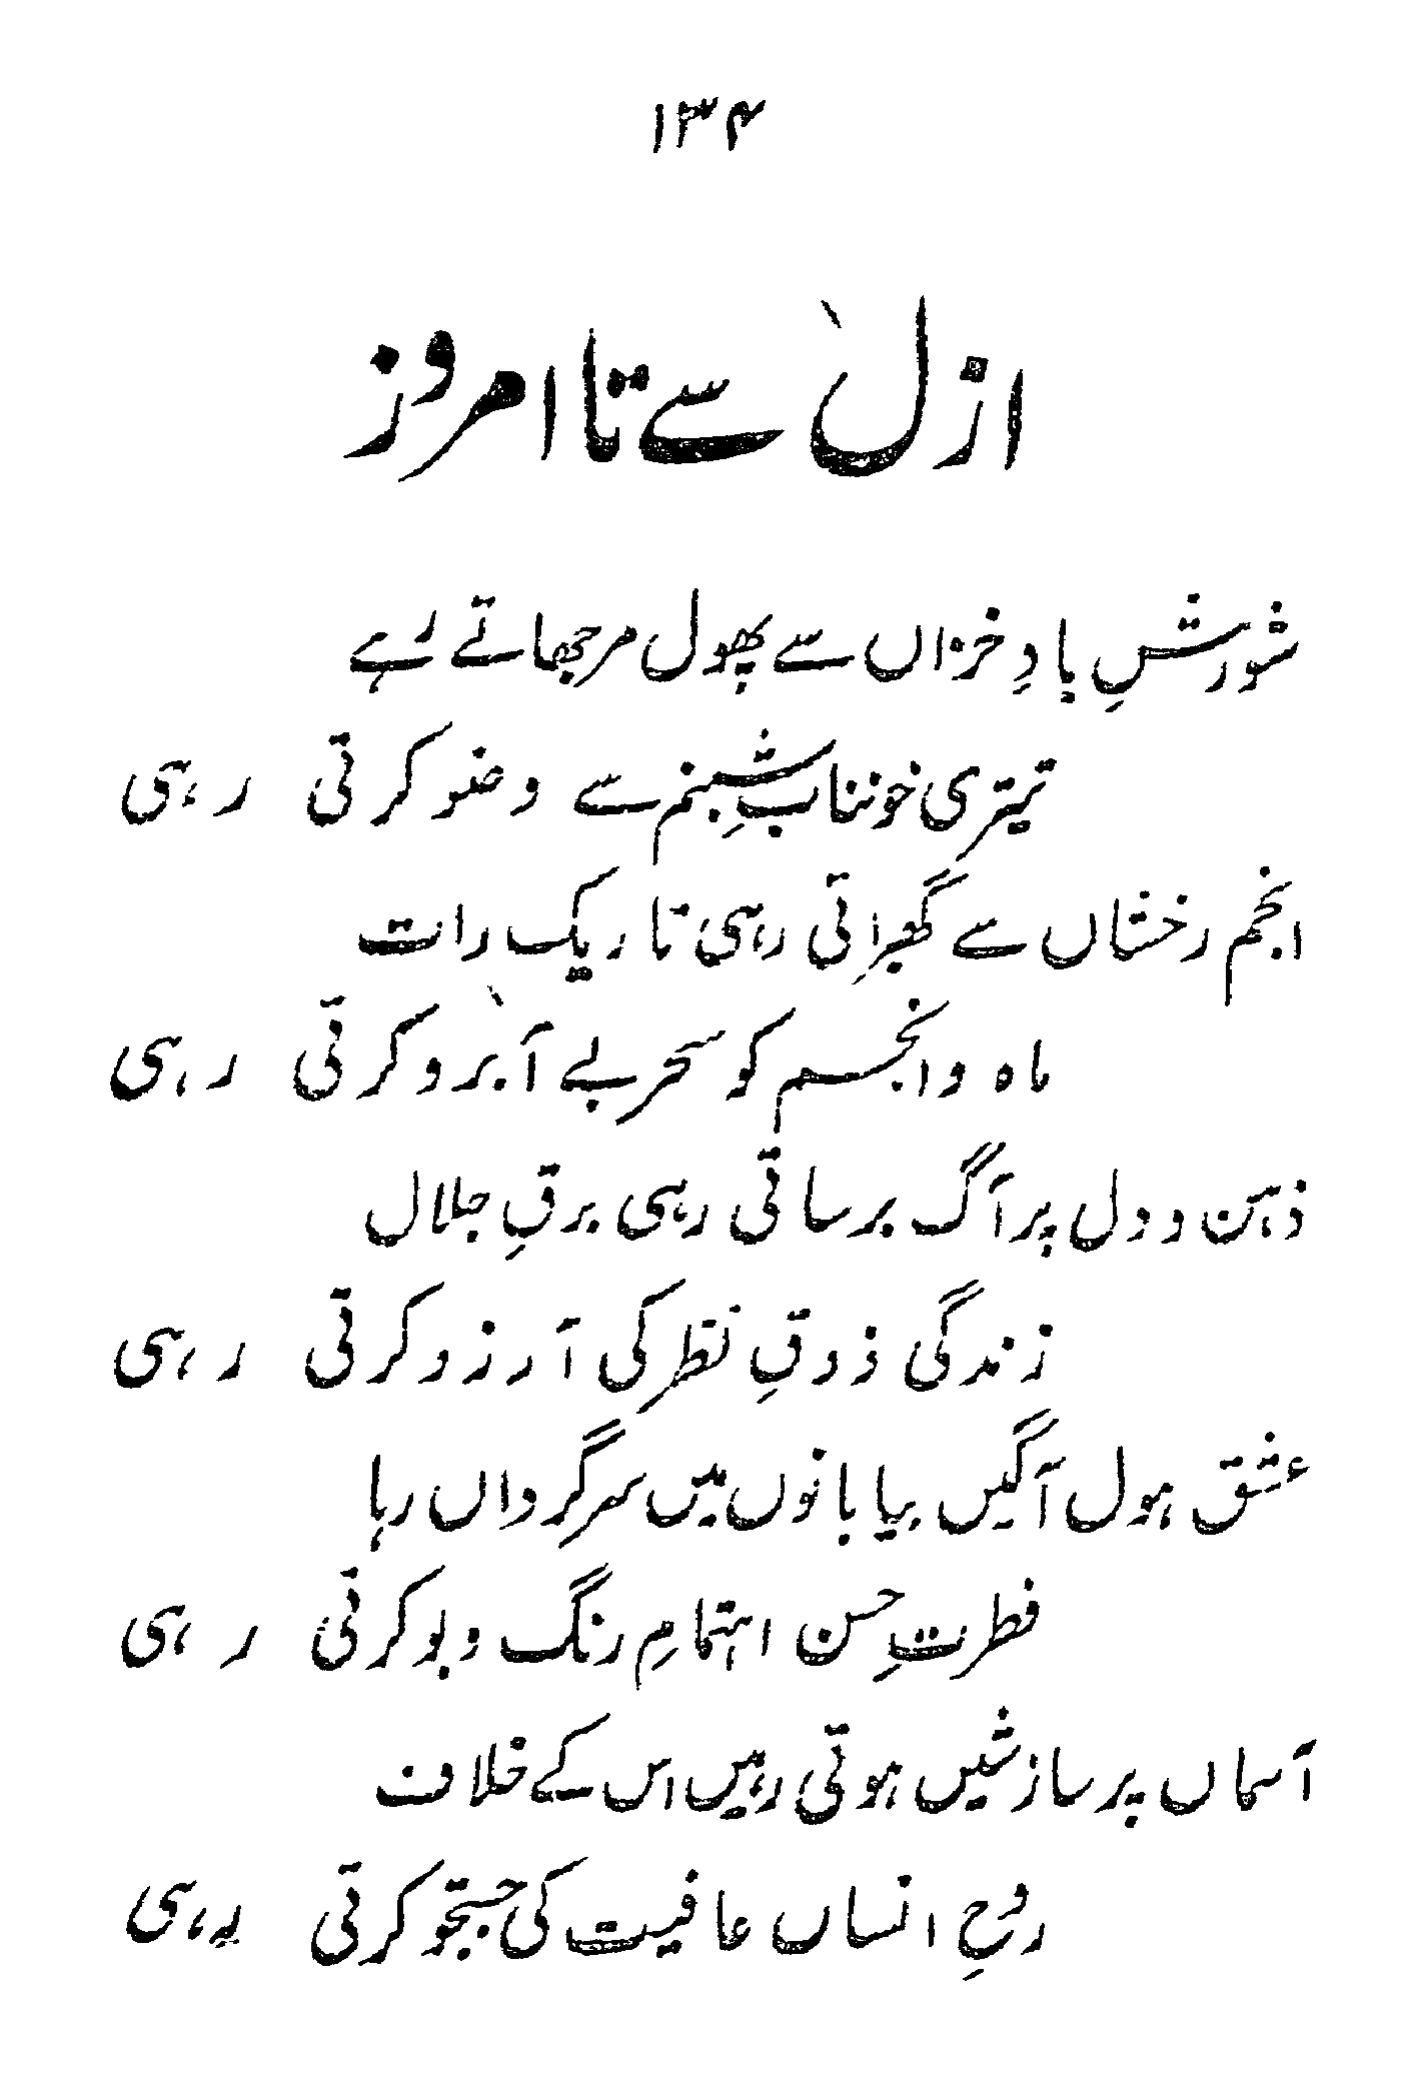 ۱۳۴
ازل سے تا امروز
شورشِ بادِ خزاں سے پھول مرجھاتے رہے
تیتری خونابِ شبنم سے وضو کرتی رہی
انجم رخشاں سے گھبراتی رہی تاریک رات
ماہ و انجم کو سحر بے آبرو کرتی رہی
ذہن و دل پر آگ برساتی رہی برقِ جلال
زندگی ذوقِ نظر کی آرزو کرتی رہی
عشق ہول آگیں بیابانوں میں سرگرداں رہا
فطرتِ حسن اہتمامِ رنگ و بو کرتی رہی
آسماں پر سازشیں ہوتی رہیں اس کے خلاف
روحِ انساں عافیت کی جستجو کرتی رہی